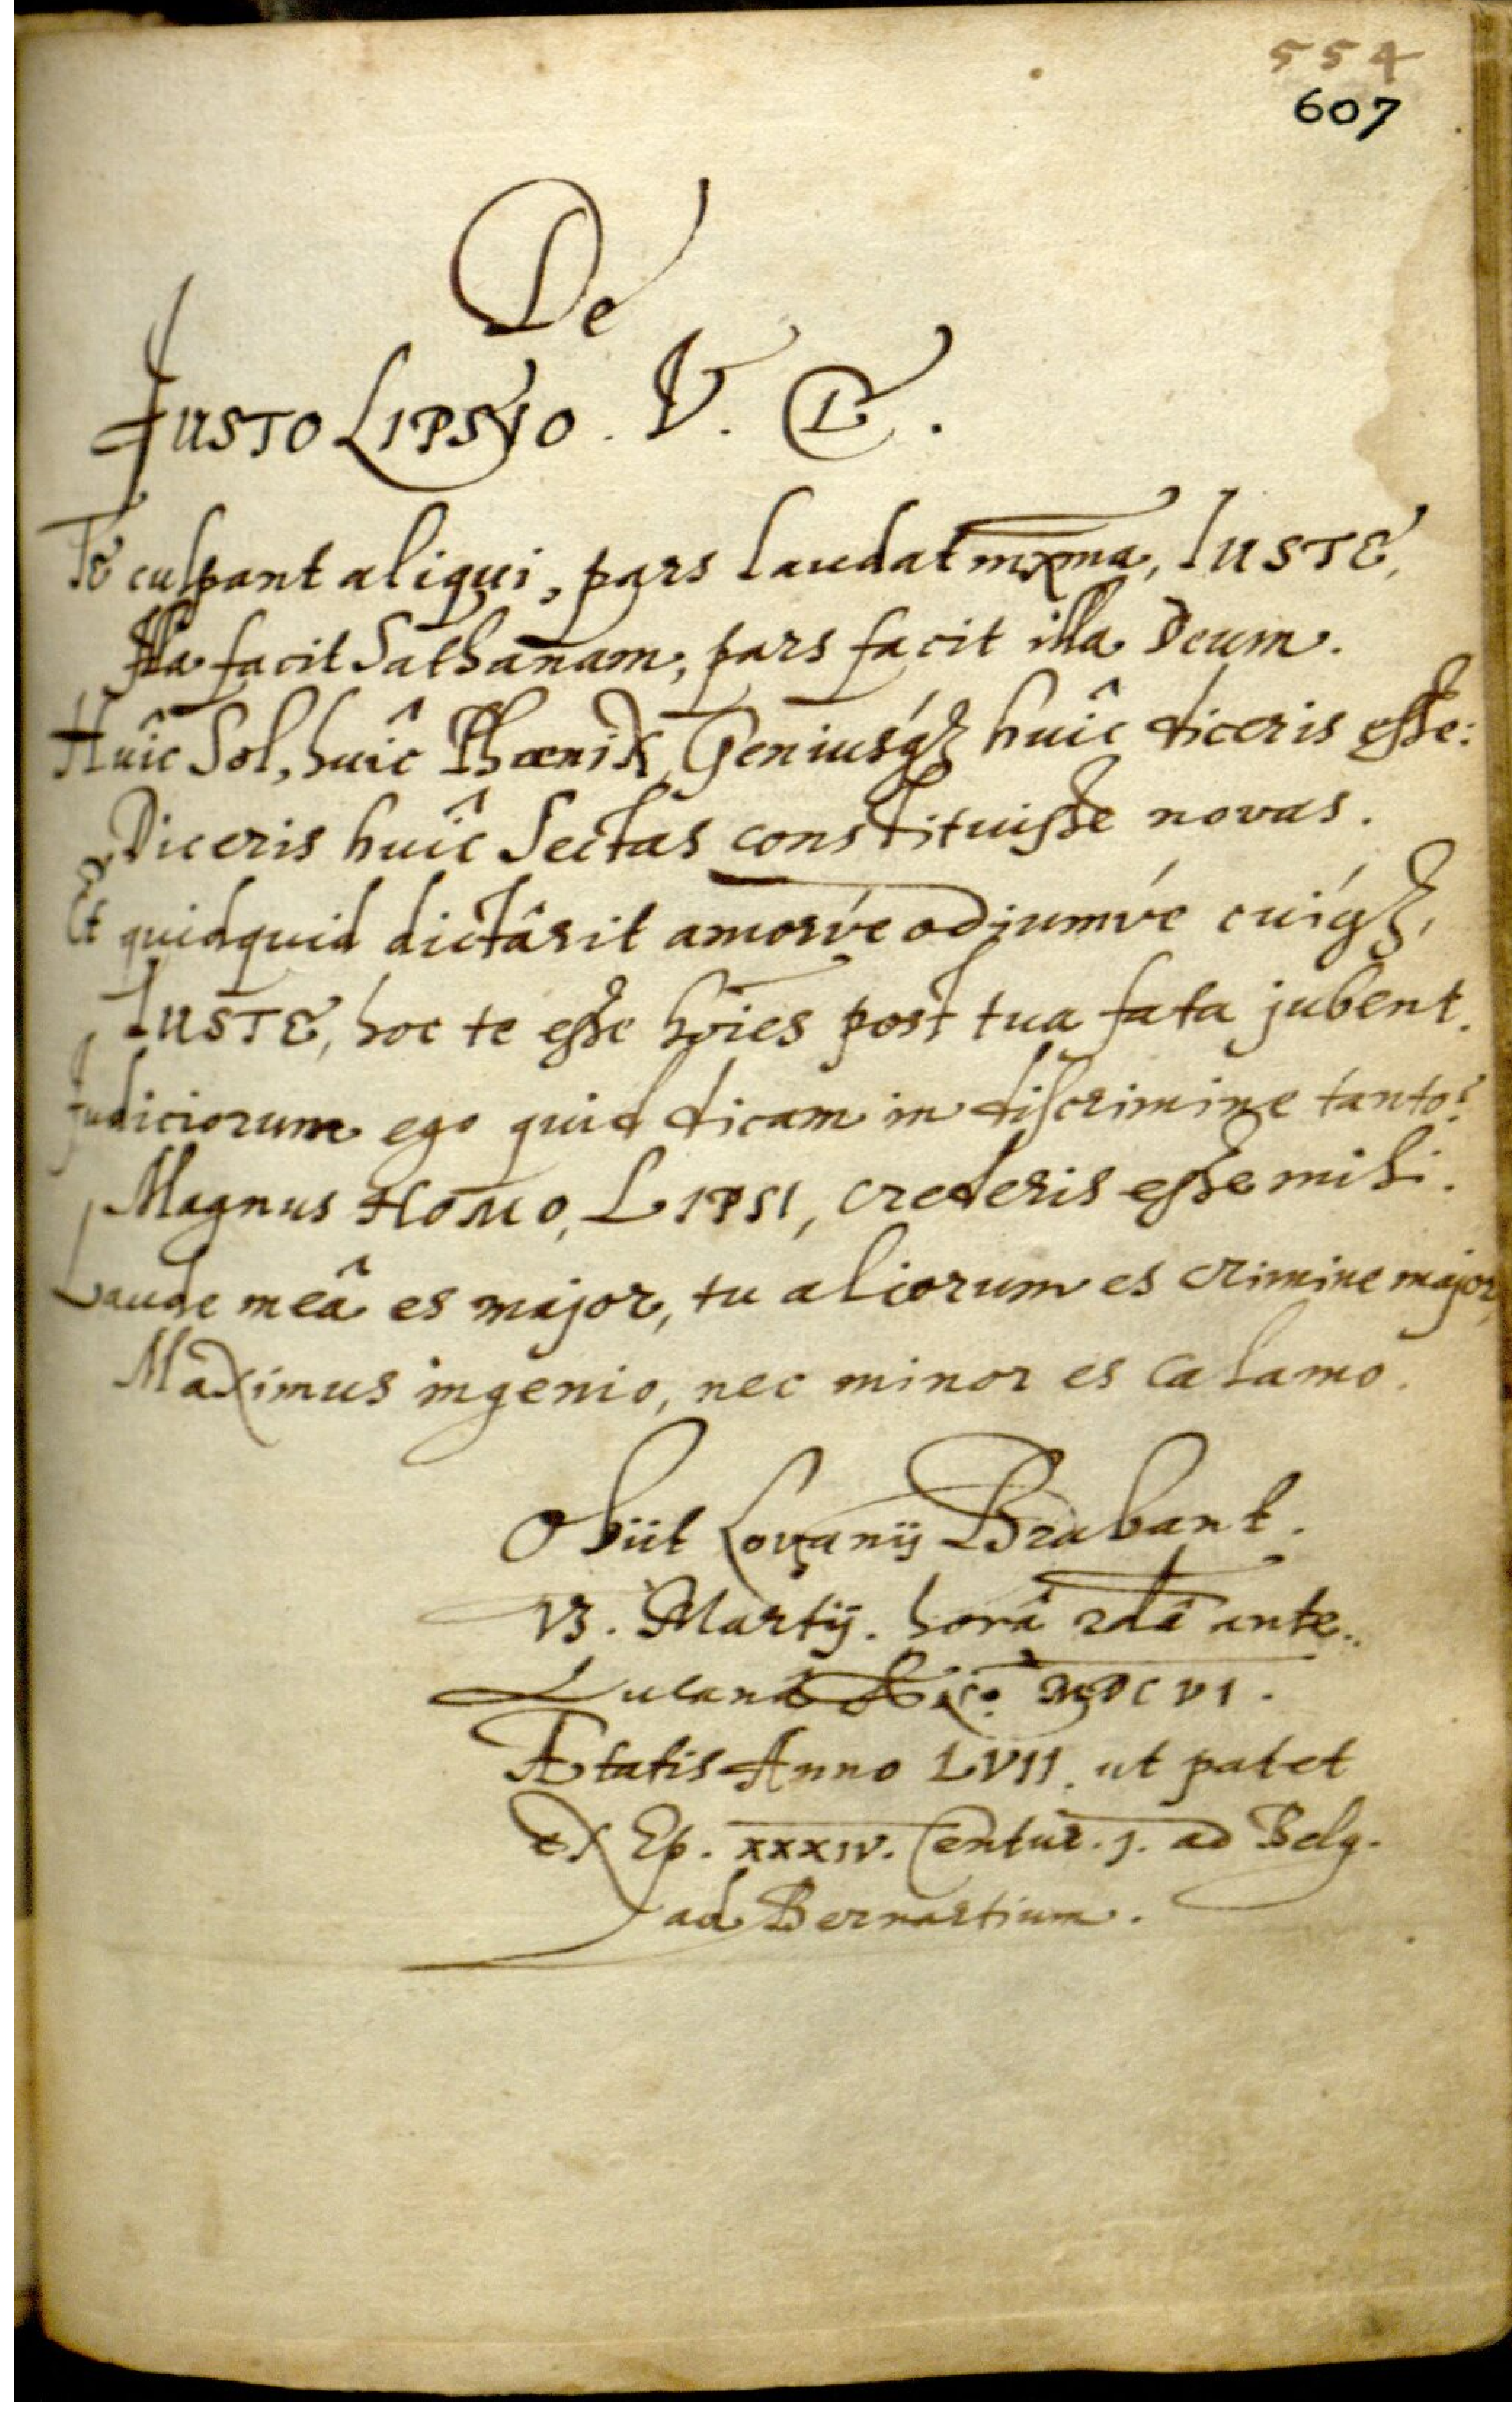 554
607
De
JUSTO LIPSIO. V. Cl.
Te culpant aliqui, pars laudat mxma, IUSTE,
Illa facit Sathanam, pars facit illa Deum.
Huîc Sol, huîc Phœnix, Geniusq́ꝫ huîc diceris esse:
Diceris huîc Sectas constituisse novas.
Et quidquid dictârit amorvé odiumvé cuíqꝫ,
IUSTE, hoc te esse hōies post tua fata jubent.
Judiciorum ego quid dicam in discrimine tanto?
Magnus HOMO, LIPSI, crederis esse mihi.
Laude meâ es major, tu aliorum es crimine major,
Maximus ingenio, nec minor es calamo.
Obiit Lovanij Brabant.
Martij. horâ 2dâ ante
MDCVI.
Ætatis Anno LVII. ut patet
ex Ep. XXXIV. Centur. j. ad Belg.
ad Bernartium.